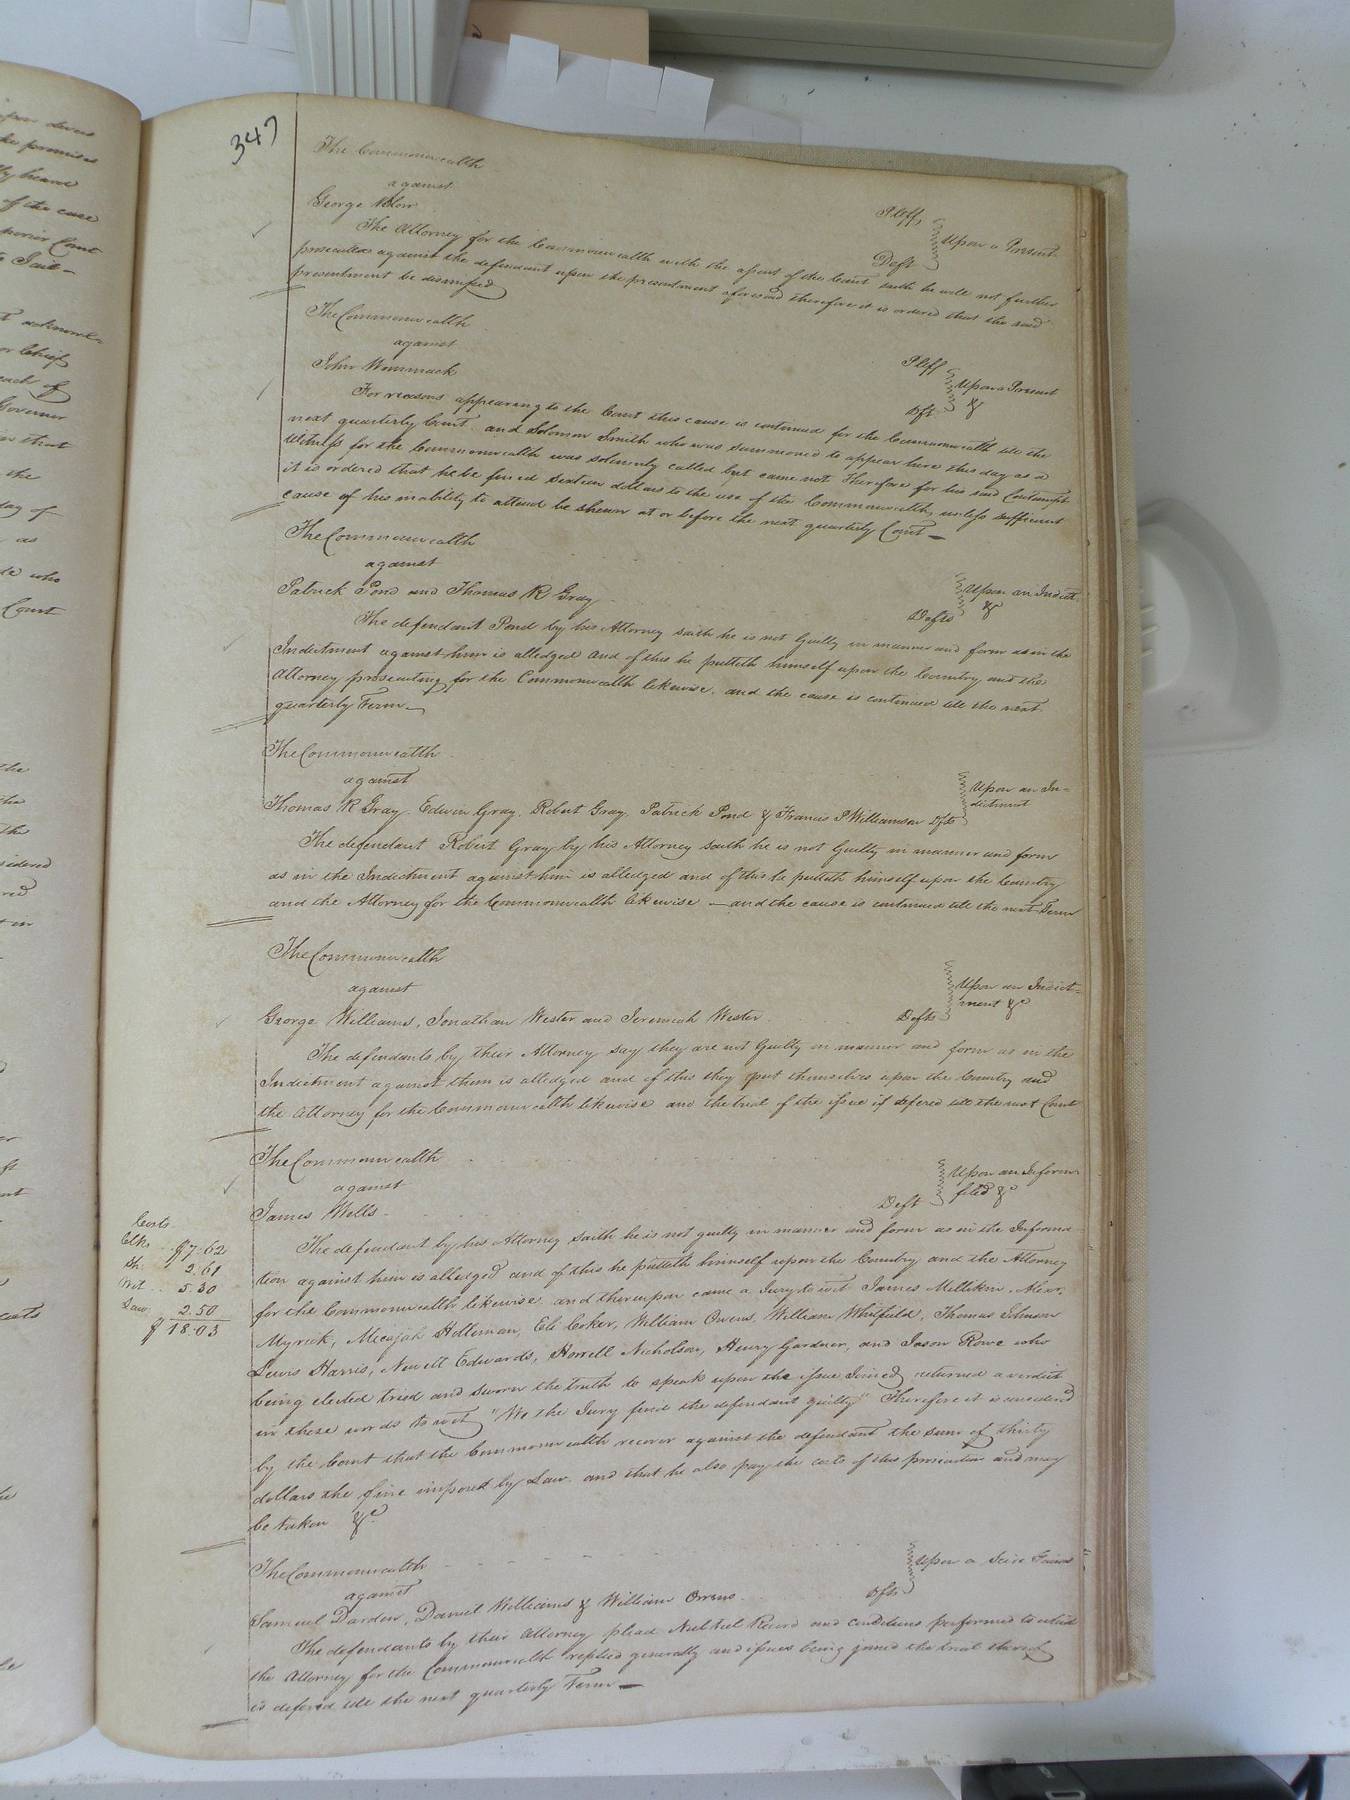 347
The Commonwealth
against
Pltff
George
Deft
Upon a Present
The Attorney for the Commonwealth with the assent of the Court saith he will not further
prosecute against the defendant upon the presentment aforesaid therefore it is ordered that the said
presentment be dismissed
The Commonwealth
against
Pltff
John Wommack
Dft
Upon a Present
&
For reasons appearing to the Court this cause is continued for the Commonwealth till the
next quarterly Court and Solomon Smith who was summoned to appear here this day as a
Witness for the Commonwealth was solemnly called but came not Therefore for his said Contempt
it is ordered that he be fined Sixteen dollars to the use of the Commonwealth, unless sufficient
cause of his inability to attend be shewn at or before the next quarterly Court —
The Commonwealth
against
Patrick Pond and Thomas R Gray
Defts
Upon an Indict
&c
The defendant Pond by his Attorney saith he is not Guilty in manner and form as in the
Indictment against him is alledged and of this he putteth himself upon the Country and the
Attorney prosecuting for the Commonwealth likewise, and the cause is continued till the next
quarterly Term —
The Commonwealth
against
Thomas R Gray, Edwin Gray, Robert Gray, Patrick Pond & Francis P Williamson Dfts
Upon an In=
dictment
The defendant Robert Gray by his Attorney saith he is not Guilty in manner and form
as in the Indictment against him is alledged and of this he putteth himself upon the Country
and the Attorney for the Commonwealth likewise — and the cause is continued till the next Term
The Commonwealth
against
George Williams, Jonathan Wester and Jeremiah Wester
Defts
Upon an Indict=
ment &c
The defendants by their Attorney say they are not Guilty in manner and form as in the
Indictment against them is alledged and of this they put themselves upon the Country and
the Attorney for the Commonwealth likewise and the trial of the issue is defered till the next Court
The Commonwealth
against
James Wells
Deft
Upon an Inform
filed &c
Costs
Clk. $7.62
Sh. 2.61
Wit. 5.30
Law. 2.50
$18.03
The defendant by his Attorney saith he is not guilty in manner and form as in the Informa
tion against him is alledged and of this he putteth himself upon the Country and the Attorney
for the Commonwealth likewise and thereupon came a Jury to wit James Millikin, Alex.
Myrick, Micajah Holleman, Eli Coker, William Owens, William Whitfield, Thomas Johnson
Lewis Harris, Newitt Edwards, Harrell Nicholson, Henry Gardner, and Jason Rowe who
being elected tried and sworn the truth to speak upon the issue Joined returned a verdict
in these words to wit "We the Jury find the defendant guilty" Therefore it is considered
by the Court that the Commonwealth recover against the defendant the sum of thirty
dollars the fine imposed by Law, and that he also pay the costs of this prosecution and may
be taken &c.
The Commonwealth
against
Samuel Darden, Daniel Williams & William Owens
Dfts
Upon a Scire Facias
The defendants by their Attorney plead Nul tiel Record and conditions performed to which
the Attorney for the Commonwealth replied generally and issues being joined the trial thereof
is defered till the next quarterly Term —